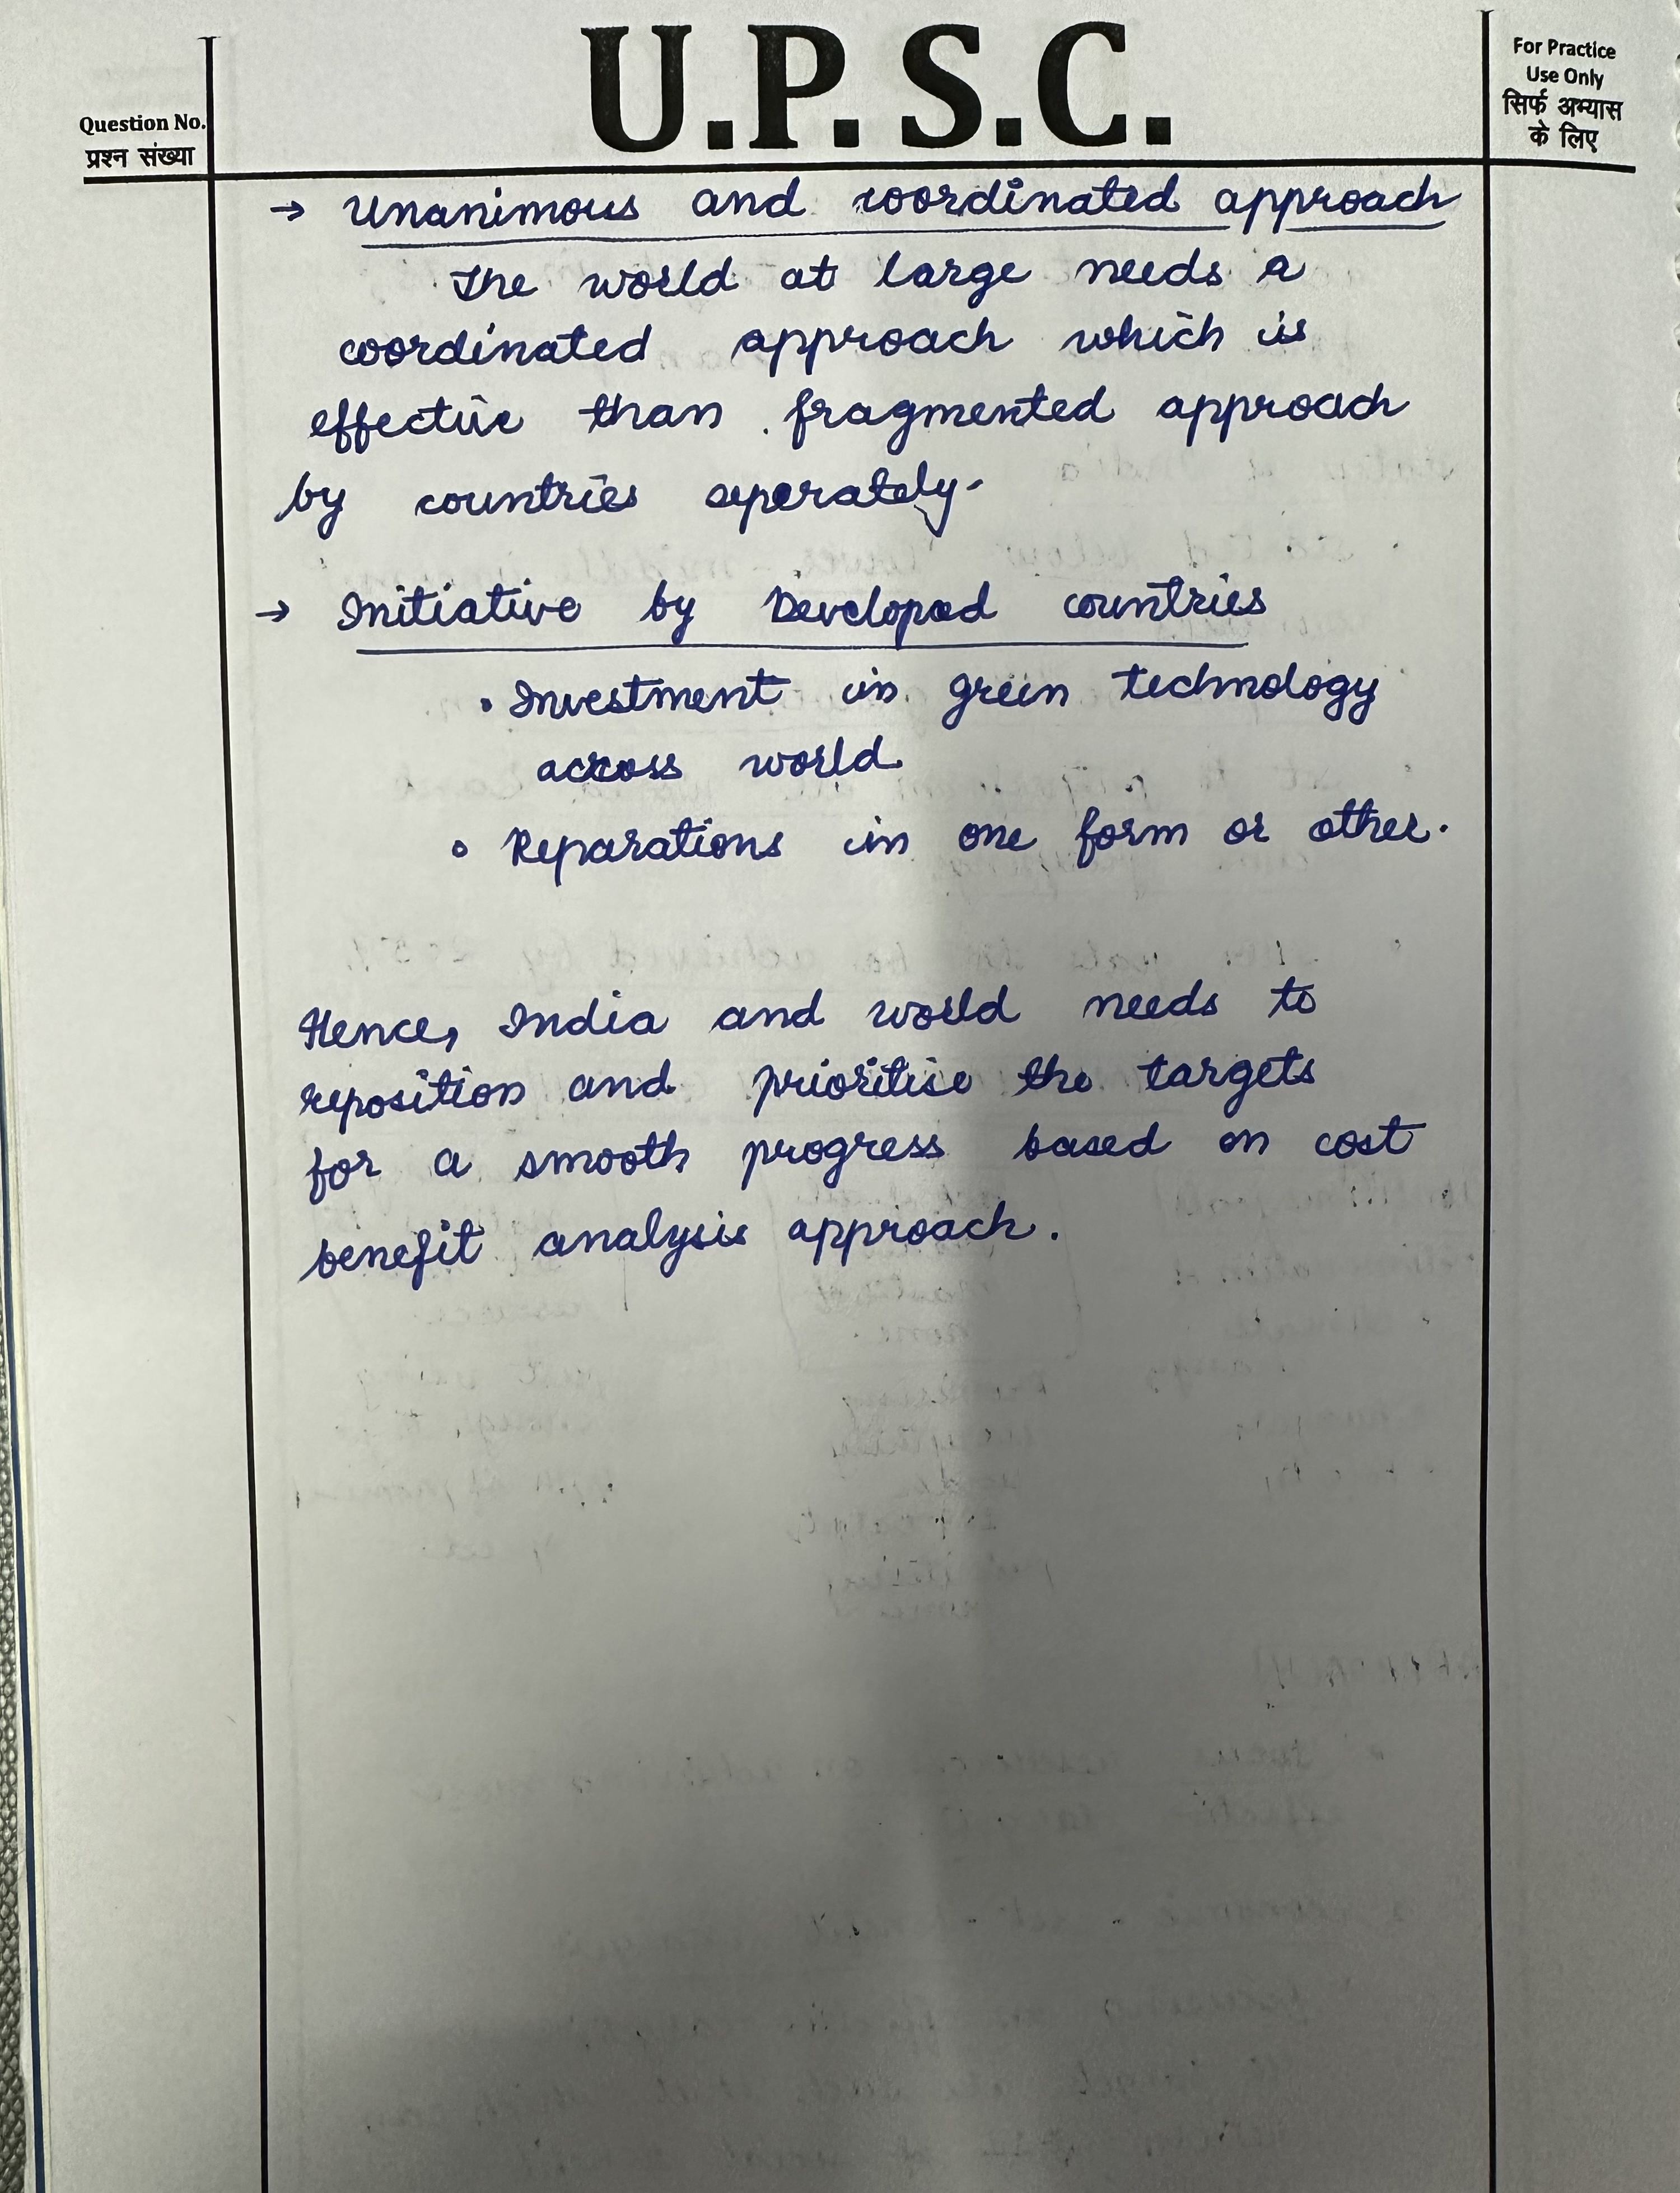 U.P.S.C.
Question No.
प्रश्न संख्या
For Practice
Use Only
सिर्फ अभ्यास
के लिए
→ Unanimous and coordinated approach
The world at large needs a
coordinated approach which is
effective than fragmented approach
by countries seperately.
→ Initiative by Developed countries
• Investment in green technology
across world
• Reparations in one form or other.
Hence, India and world needs to
reposition and prioritise the targets
for a smooth progress based on cost
benefit analysis approach.